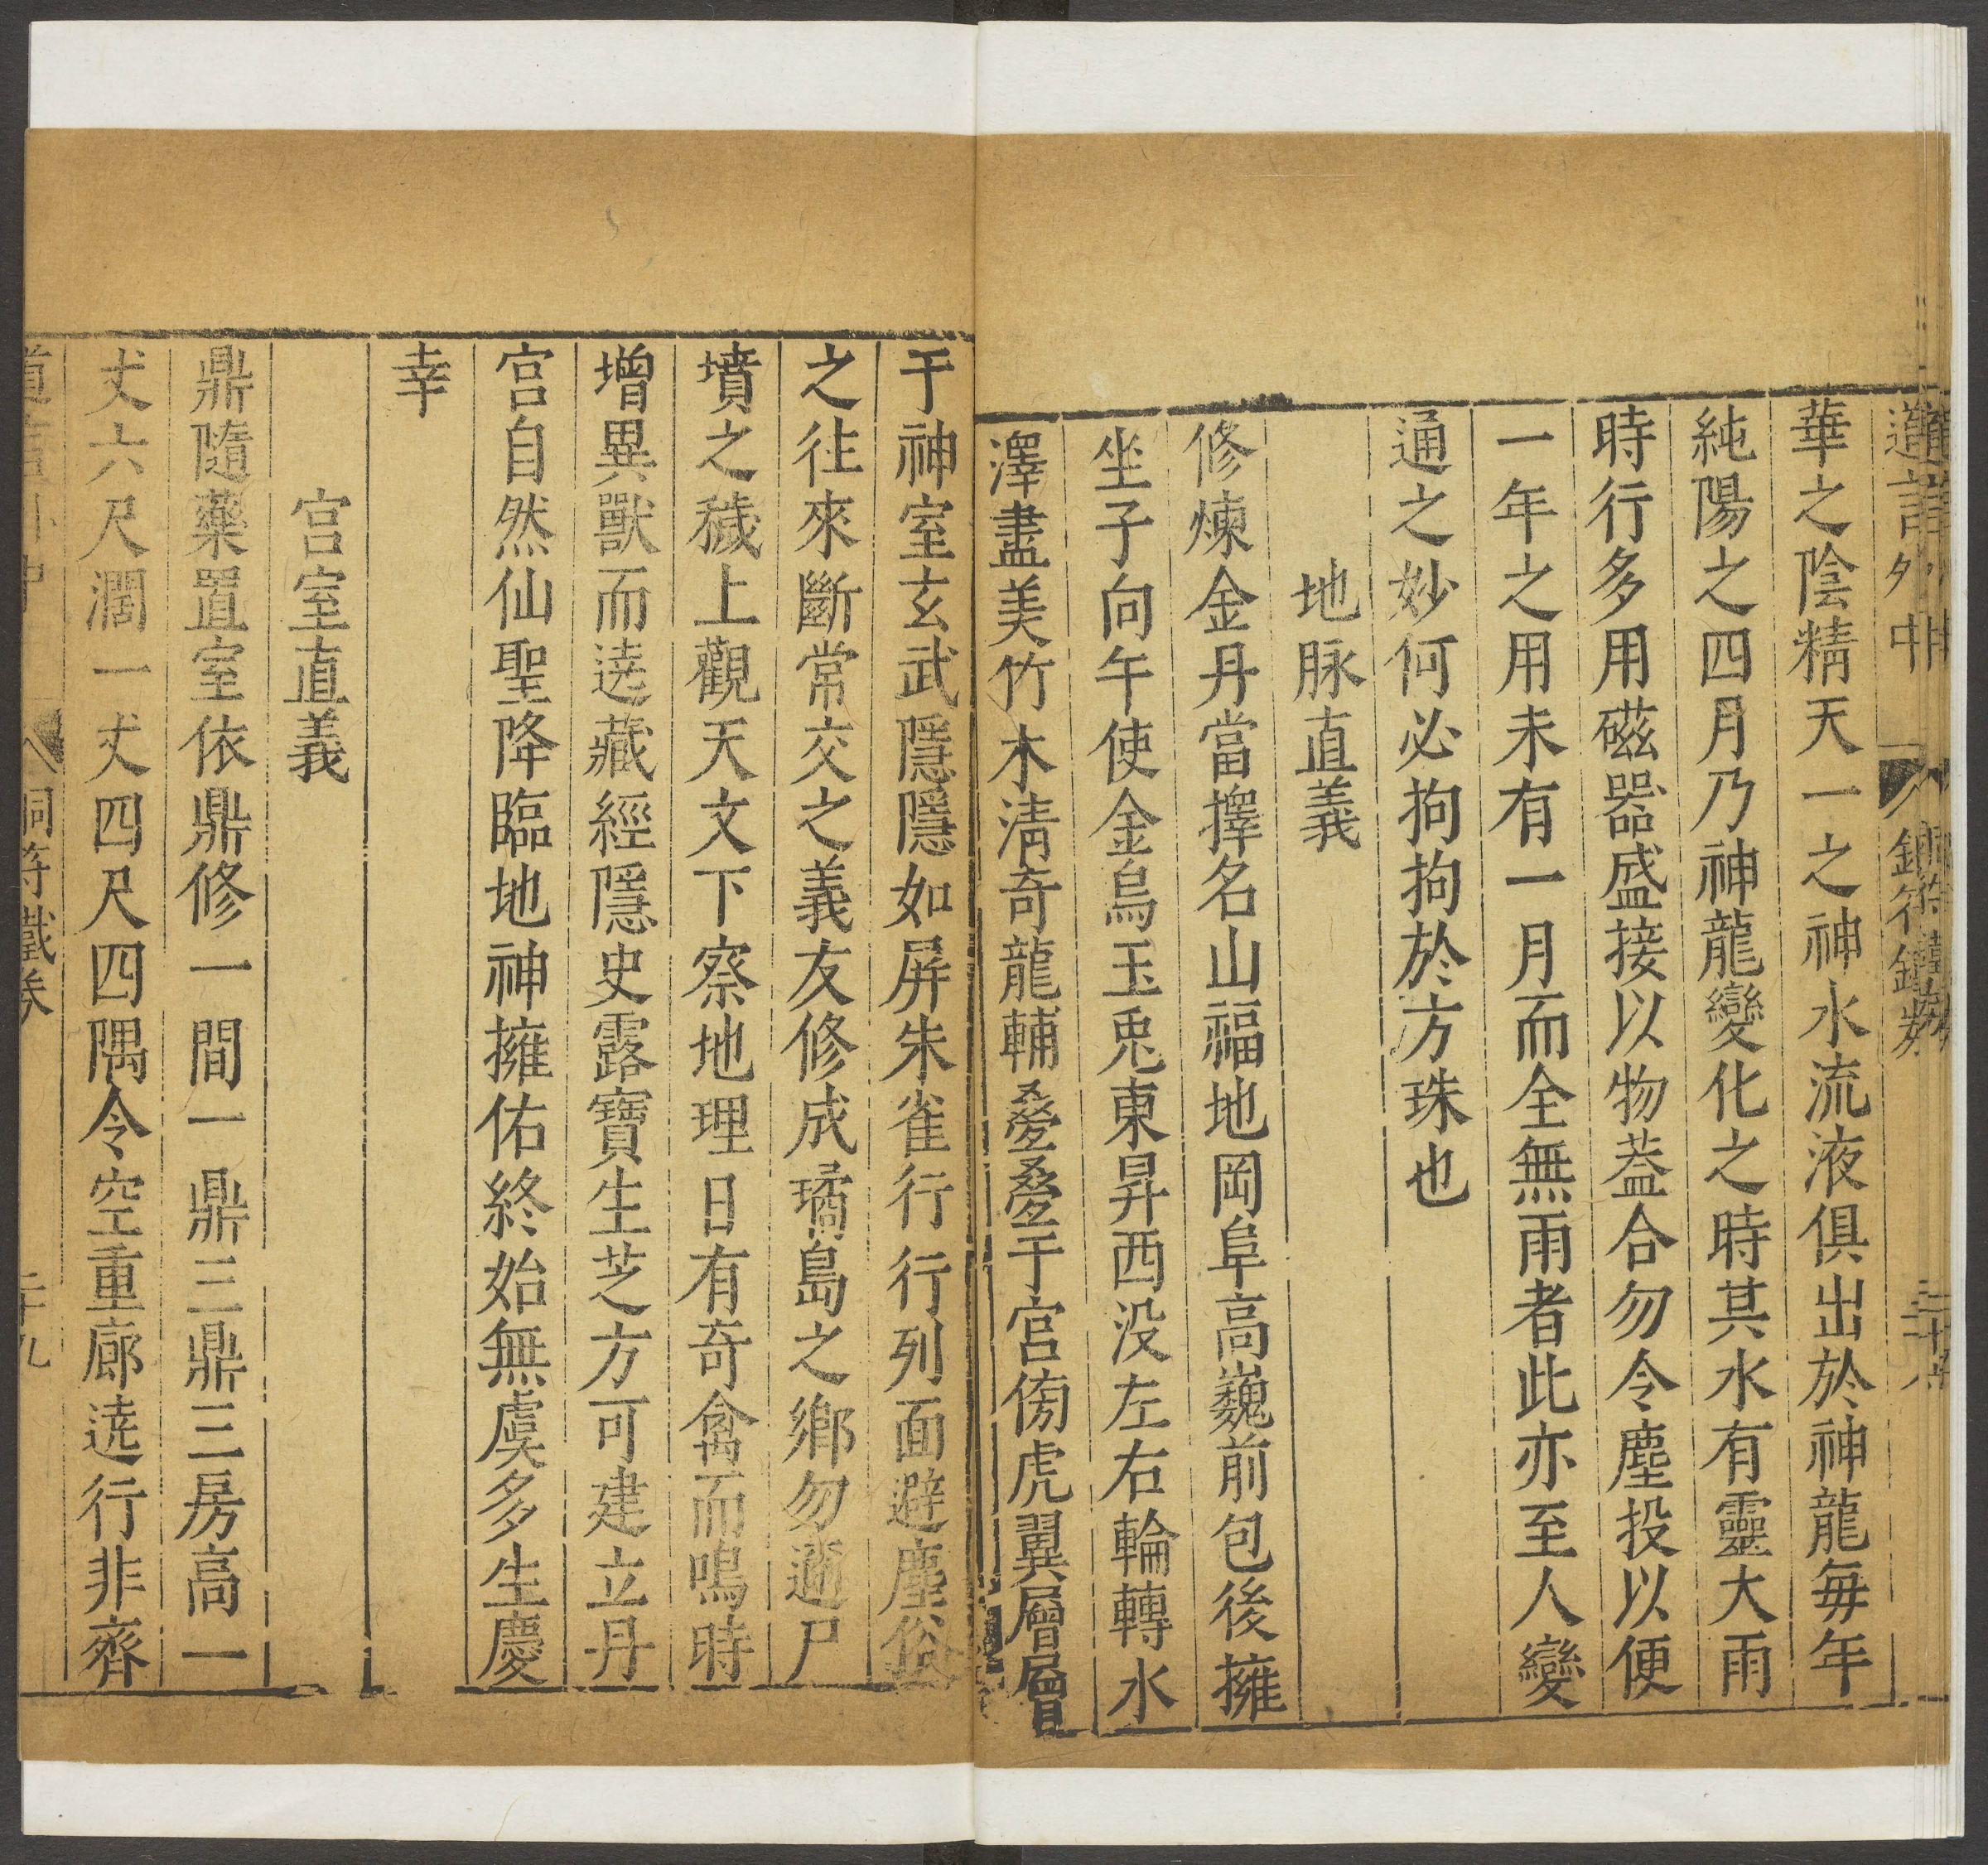 華之陰精天一之神水流液俱出於神龍每年
純陽之四月乃神龍變化之時其水有靈大雨
時行多用磁器盛接以物蓋合勿令塵投以便
一年之用未有一月而全無雨者此亦至人變
通之妙何必拘拘於方珠也
地脉直義
修煉金丹當擇名山福地岡阜高巍前包後擁
坐子向午使金烏玉兎東昇西没左右輪轉水
澤盡美竹木清奇龍輔疊疊于宮傍虎翼層層
于神室玄武隱隱如屏朱雀行行列面避塵俗
之徃來斷常交之義友修成璚島之鄉勿邇尸
墳之穢上觀天文下察地理日有奇禽而鳴時
增異獸而遶藏經隱史露寶生芝方可建立丹
宮自然仙聖降臨地神擁佑終始無虞多生慶
幸
宮室直義
鼎隨藥置室依鼎修一間一鼎三鼎三房高一
丈六尺濶一丈四尺四隅令空重廊遶行非齊
銅符鐵券
二十九